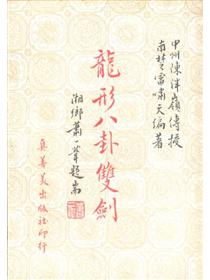 甲州陳泮嶺傳授
南楚雷嘯天編著
龍形八卦雙劍
湘鄉蕭一葦題耑
真善美出版社印行